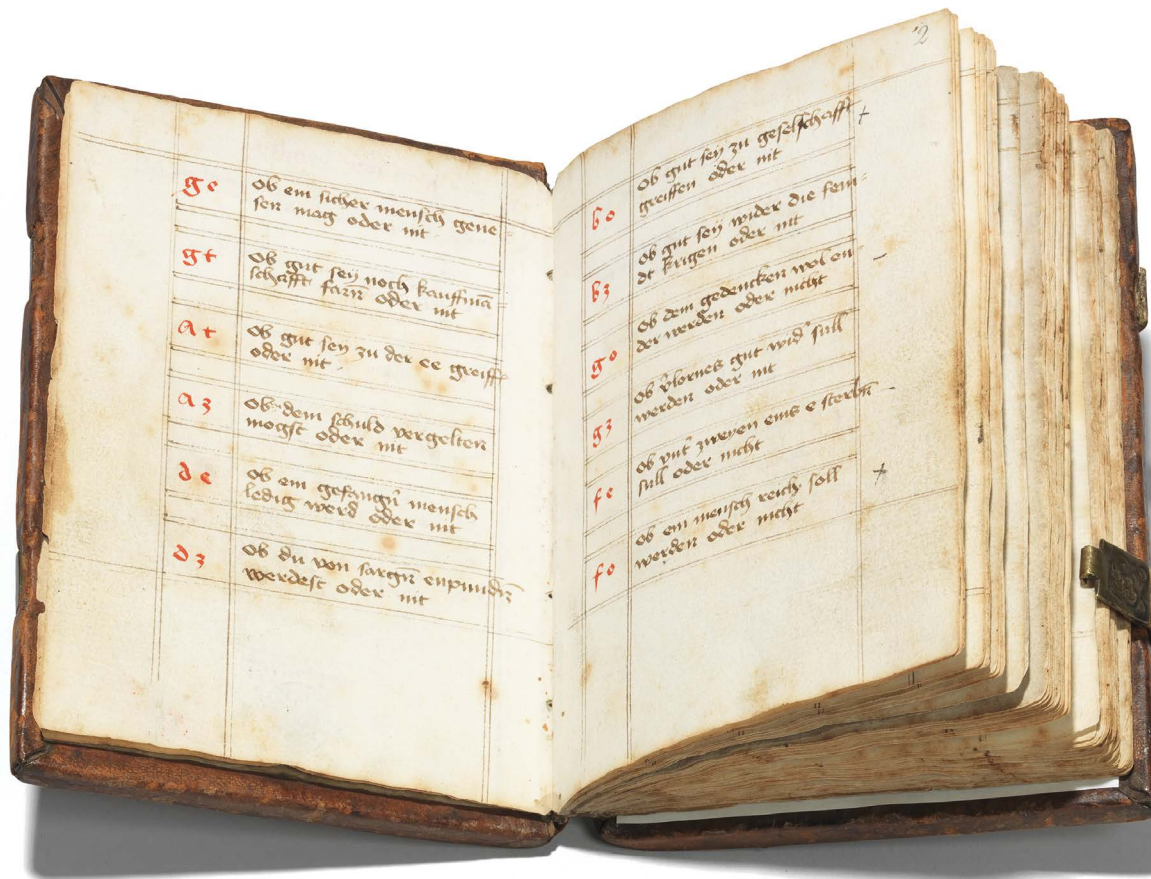 ge ob ein sicher mensch gene
sen mag oder nit
gt ob gut sey noch kauffma
schafft farn oder nit
at ob gut sey zu der ee greiff
oder nit
az ob dem schuld vergelten
mogst oder nit
de ob ein gefangn mensch
ledig werd oder nit
dz ob du von sorgn enpundn
werdest oder nit
2
bo ob gut sey zu geselschafft +
greiffen oder nit
bz ob gut sey wider die fein
dt krigen oder nit
go ob dem gedencken wol en -
der werden oder nicht
gz ob vlornes gut wid sull
werden oder nit
fe ob vnt zweyen eins e sterbn -
sull oder nicht
fo ob ein mensch reich soll +
werden oder nicht